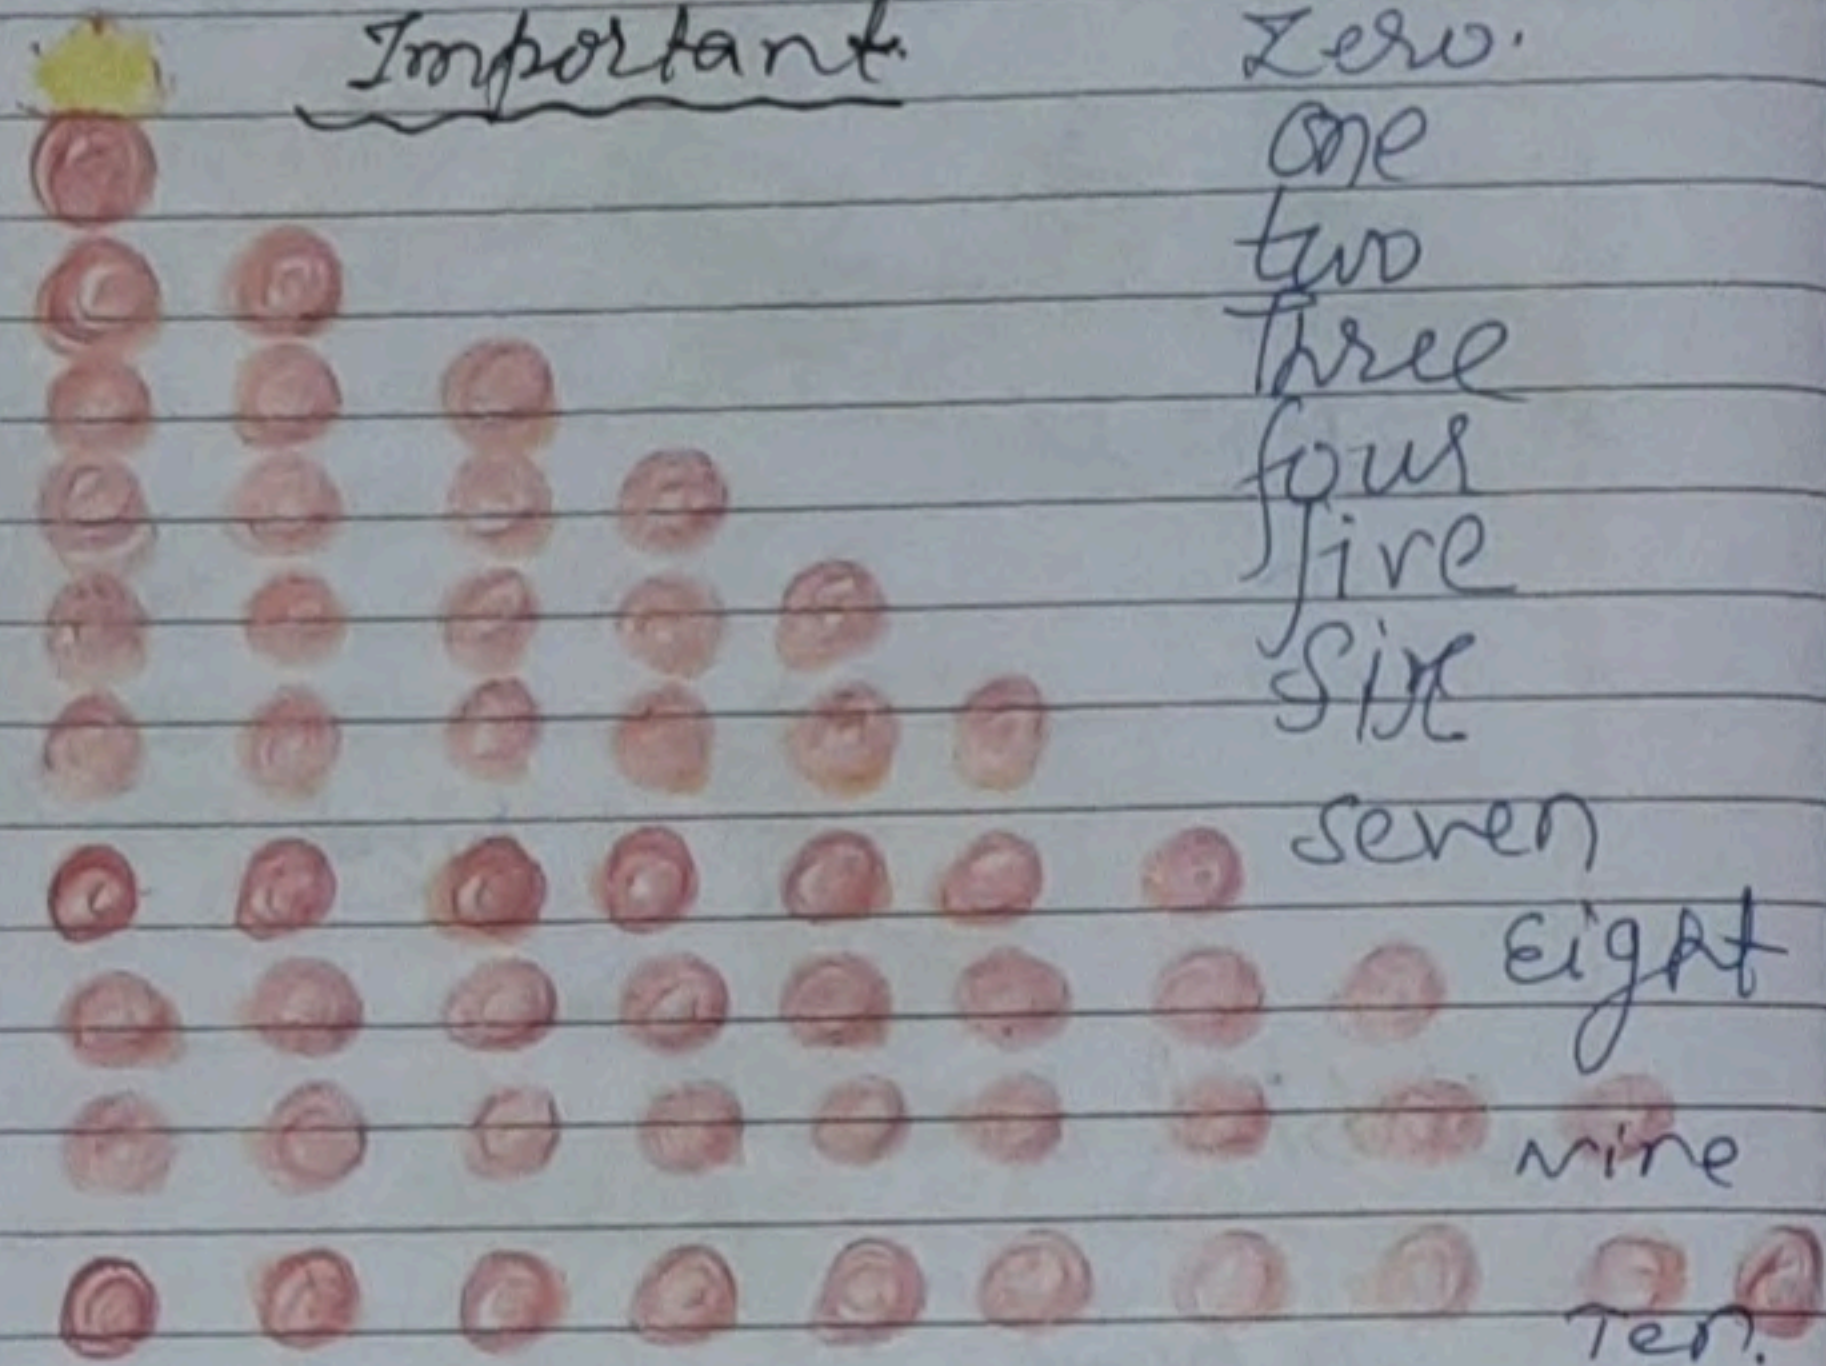 Important. Zero.
one
two
Three
four
five
Six
seven
Eight
Nine
Ten.